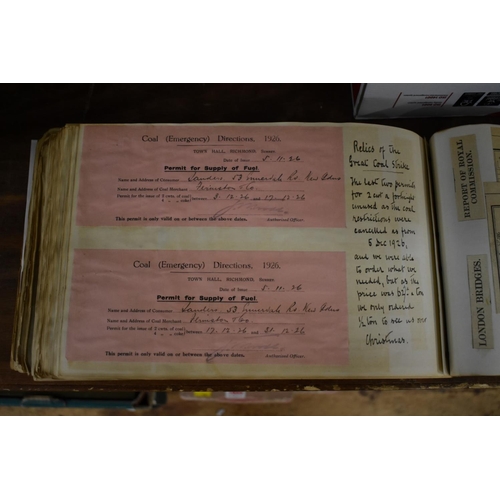 Coal (Emergency) Directions, 1926.
TOWN HALL, RICHMOND, SURREY.
Date of Issue 8.11.26
Permit for Supply of Fuel.
Name and Address of Consumer Sanders 53 Ennerdale Rd. Kew Gdns
Name and Address of Coal Merchant
Permit for the issue of 2 cwts. of coal between 3.12.26 and 17.12.26
This permit is only valid on or between the above dates.
Authorised Officer.
Coal (Emergency) Directions, 1926.
TOWN HALL, RICHMOND, SURREY.
Date of Issue 8.11.26
Permit for Supply of Fuel.
Name and Address of Consumer Sanders 53 Ennerdale Rd Kew Gdns
Name and Address of Coal Merchant
Permit for the issue of 2 cwts. of coal between 17.12.26 and 31.12.26
This permit is only valid on or between the above dates.
Authorised Officer.
Relics of the
Great Coal Strike
The last two permits
for 2 cwt a fortnight
unused as the coal
restrictions were
cancelled as from
8 Dec 1926,
and we were able
to order what we
needed, but as the
price was a ton
we only ordered
½ ton to see us over
Christmas.
REPORT OF ROYAL
COMMISSION.
LONDON BRIDGES.